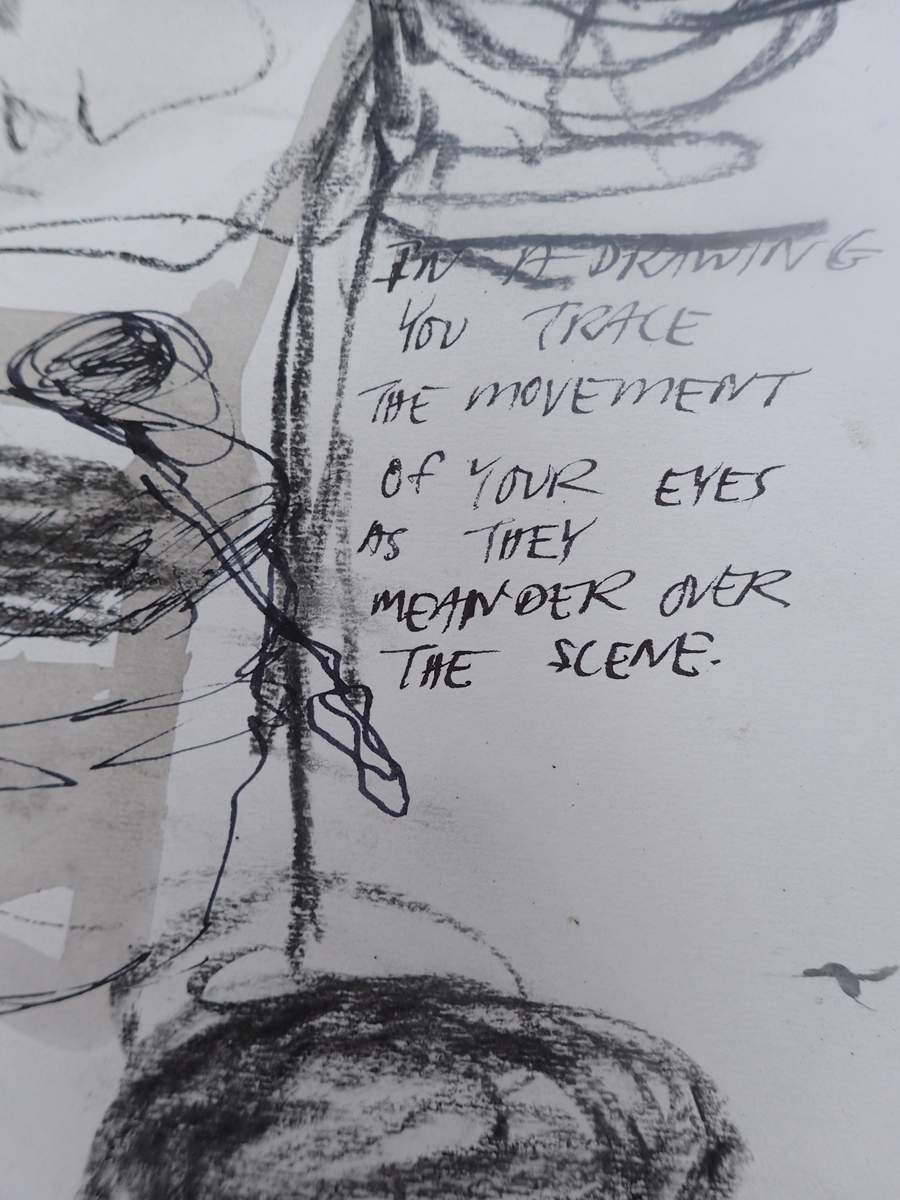 IN A DRAWING
YOU TRACE
THE MOVEMENT
OF YOUR EYES
AS THEY
MEANDER OVER
THE SCENE.